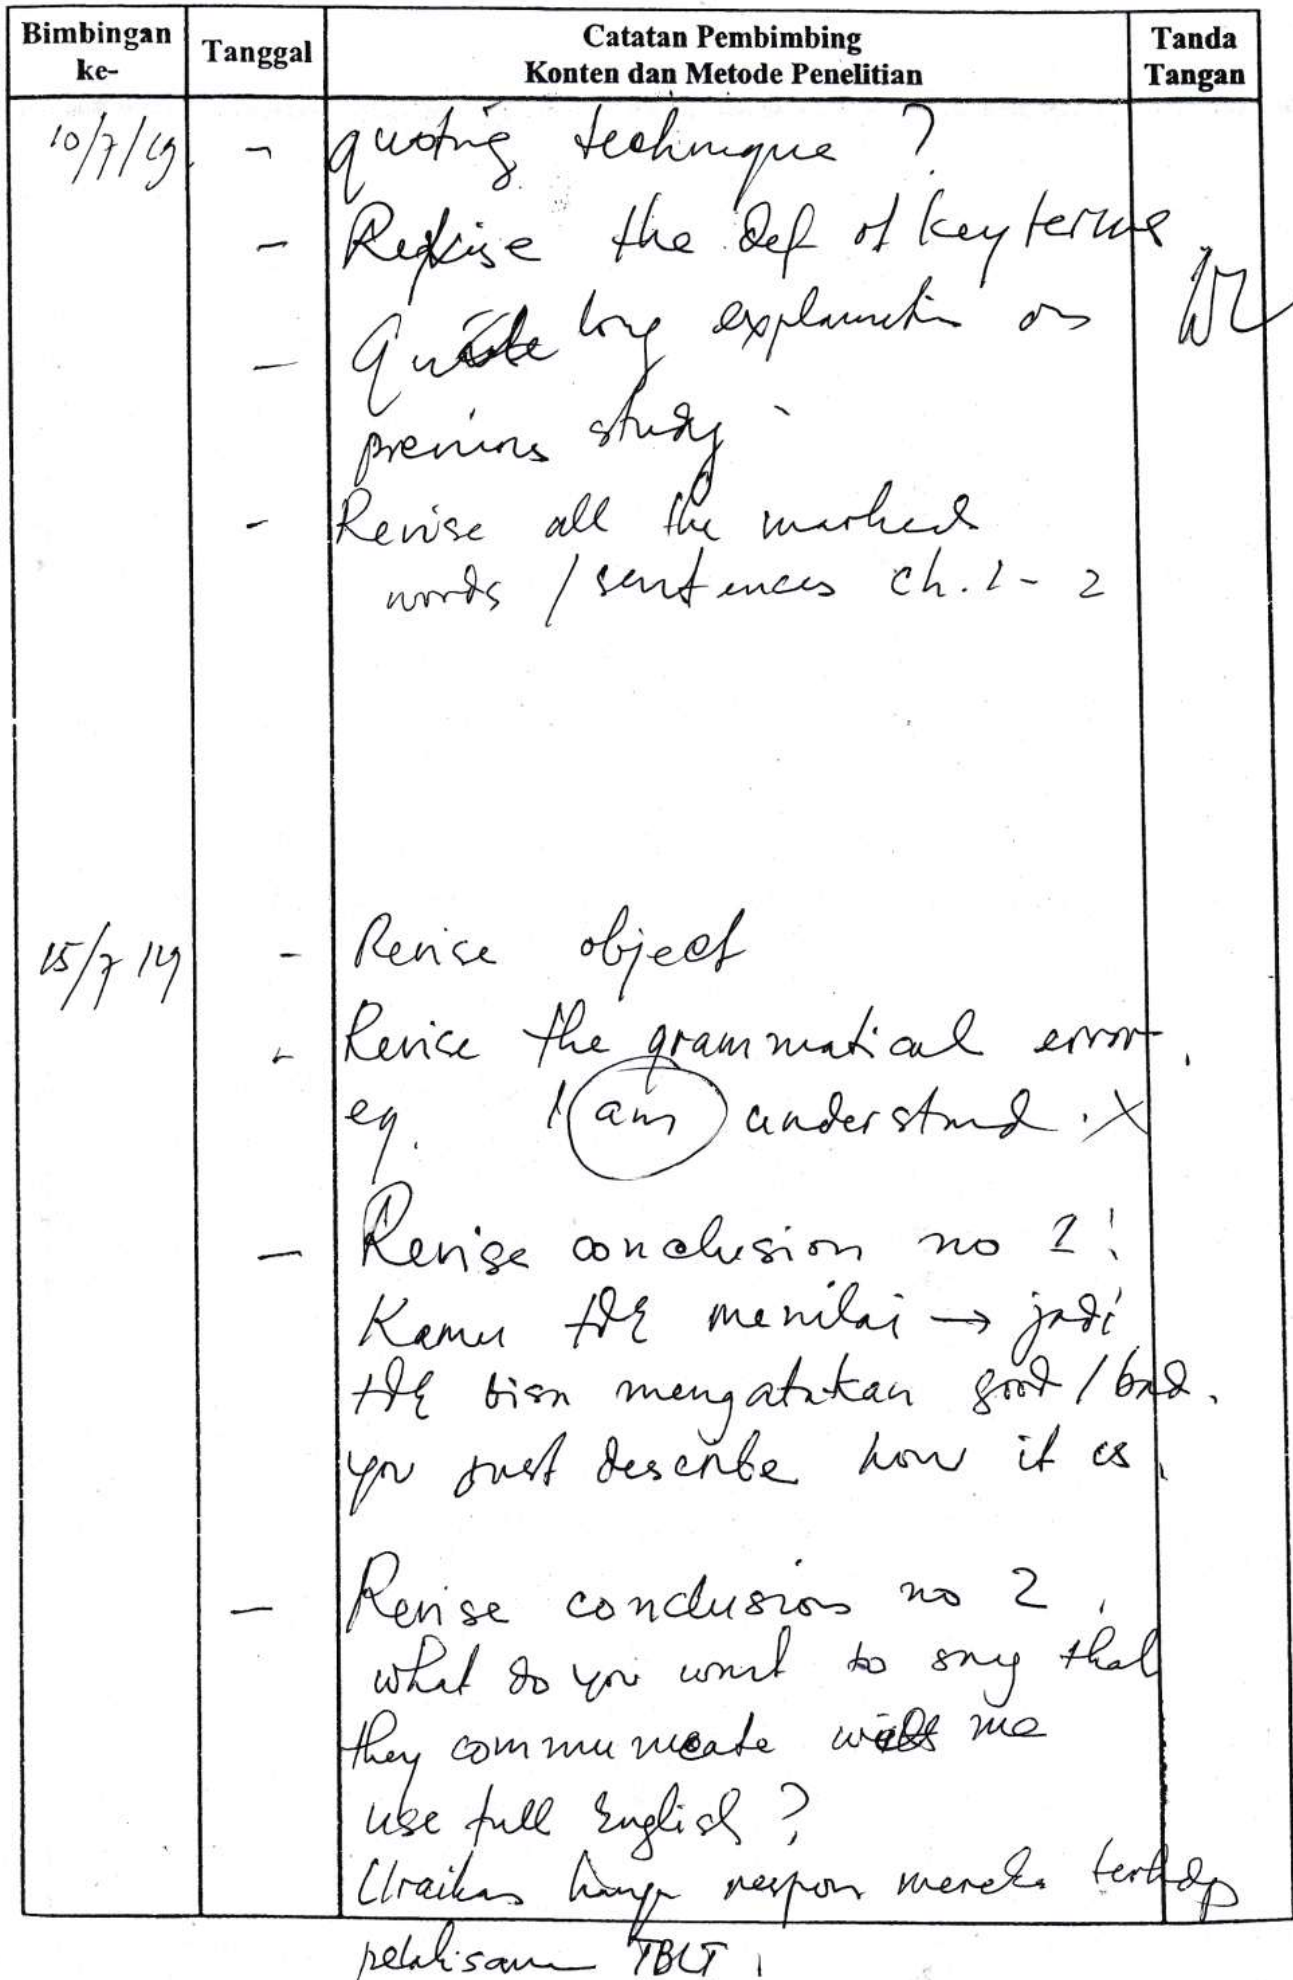 Bimbingan ke- Tanggal Catatan Pembimbing Konten dan Metode Penelitian Tanda Tangan
10/7/19 - quoting technique ?
- Revise the def of key terms
- Quite long explanation on
previous study
- Revise all the marked
words / sentences ch. 1 - 2
15/7/19 - Revise object
- Revise the grammatical error.
eg. I am understand. X
- Revise conclusion no 1!
Kamu tdk menilai → jadi
tdk bisa mengatakan good / bad.
you just describe how it is.
- Revise conclusion no 2.
what do you want to say that
they communicate with me
use full English ?
Uraikan hanya respon mereka terhdp
TBLT.